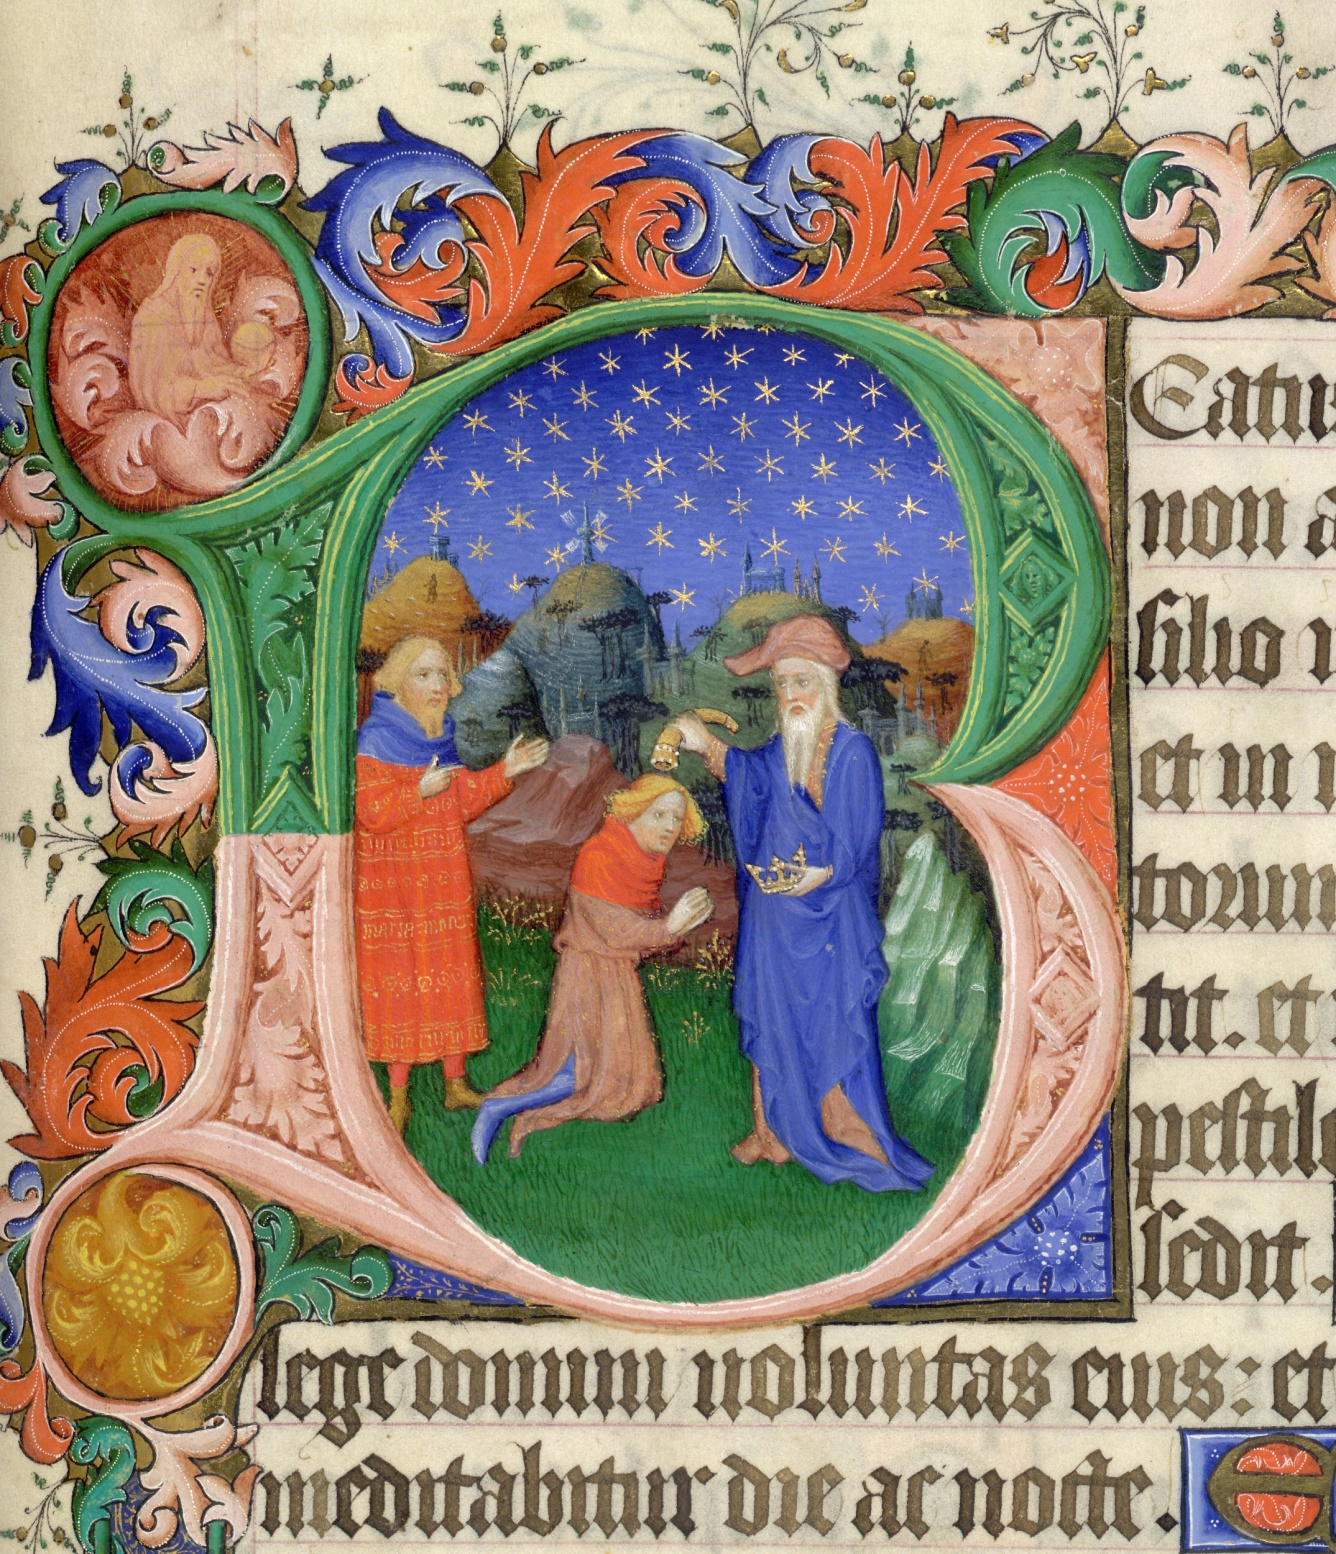 B
Eatus
non a
filio i
et in
torum
tit. et
pestile
sedit.
lege domini uoluntas eius: et
meditabitur die ac nocte. E